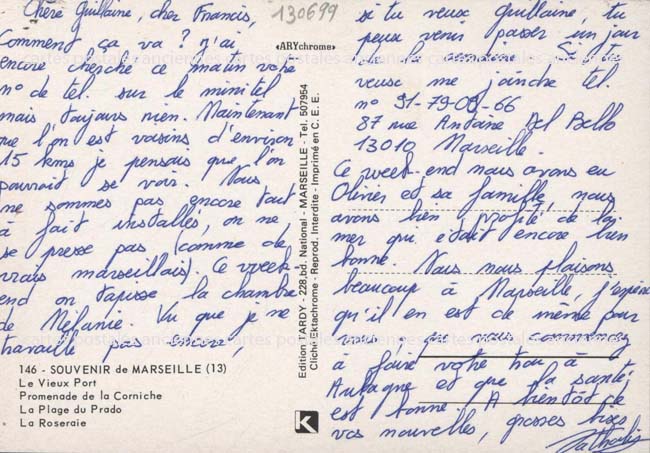 Chère Guillaine, cher Francis,
Comment ça va ? J'ai
encore cherché ce matin votre
n° de tel. sur le minitel
mais toujours rien. Maintenant
que l'on est voisins d'environ
15 kms je pensais que l'on
pourrait se voir. Nous
ne sommes pas encore tout
à fait installés, on ne
se presse pas (comme de
vrais marseillais). Ce week-
end on tapisse la chambre
de Mélanie. Vu que je ne
travaille pas encore,
146 - SOUVENIR de MARSEILLE (13)
Le Vieux Port
Promenade de la Corniche
La Plage du Prado
La Roseraie
130699
«ARYchrome»
Edition TARDY - 228, bd. National - MARSEILLE - Tel. 507954
Cliché Ektachrome - Reprod. Interdite - Imprimé en C.E.E.
K
si tu veux Guillaine, tu
peux venir passer un jour
à la maison. Si tu
veux me joindre tel.
n° 91-79-09-66
87 rue Antoine Del Bello
13010 Marseille.
Ce week-end nous avons eu
Olivier et sa famille, nous
avons bien profité de la
mer qui était encore bien
bonne. Nous nous plaisons
beaucoup à Marseille, j'espère
qu'il en est de même pour
vous, que vous commencez
à faire votre trou à
Aubagne et que la santé
est bonne. A bientôt de
vos nouvelles, grosses bises
Nathalie
cartes postales anciennes cartes postales anciennes cartes postales anciennes
cartes postales anciennes cartes postales anciennes cartes postales anciennes